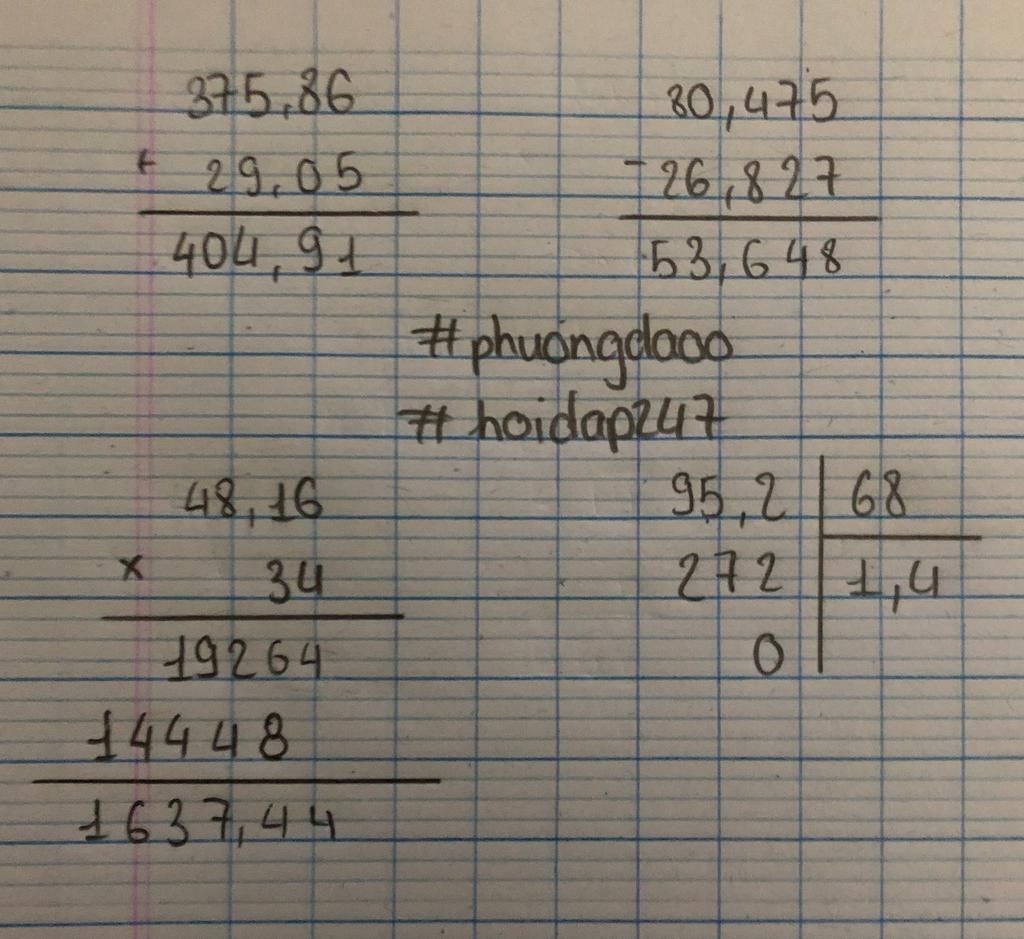 375,86
+ 29,05
404,91
80,475
- 26,827
53,648
#phuongdaoo
#hoidap247
48,16
x 34
19264
14448
1637,44
95,2 | 68
272 | 1,4
0